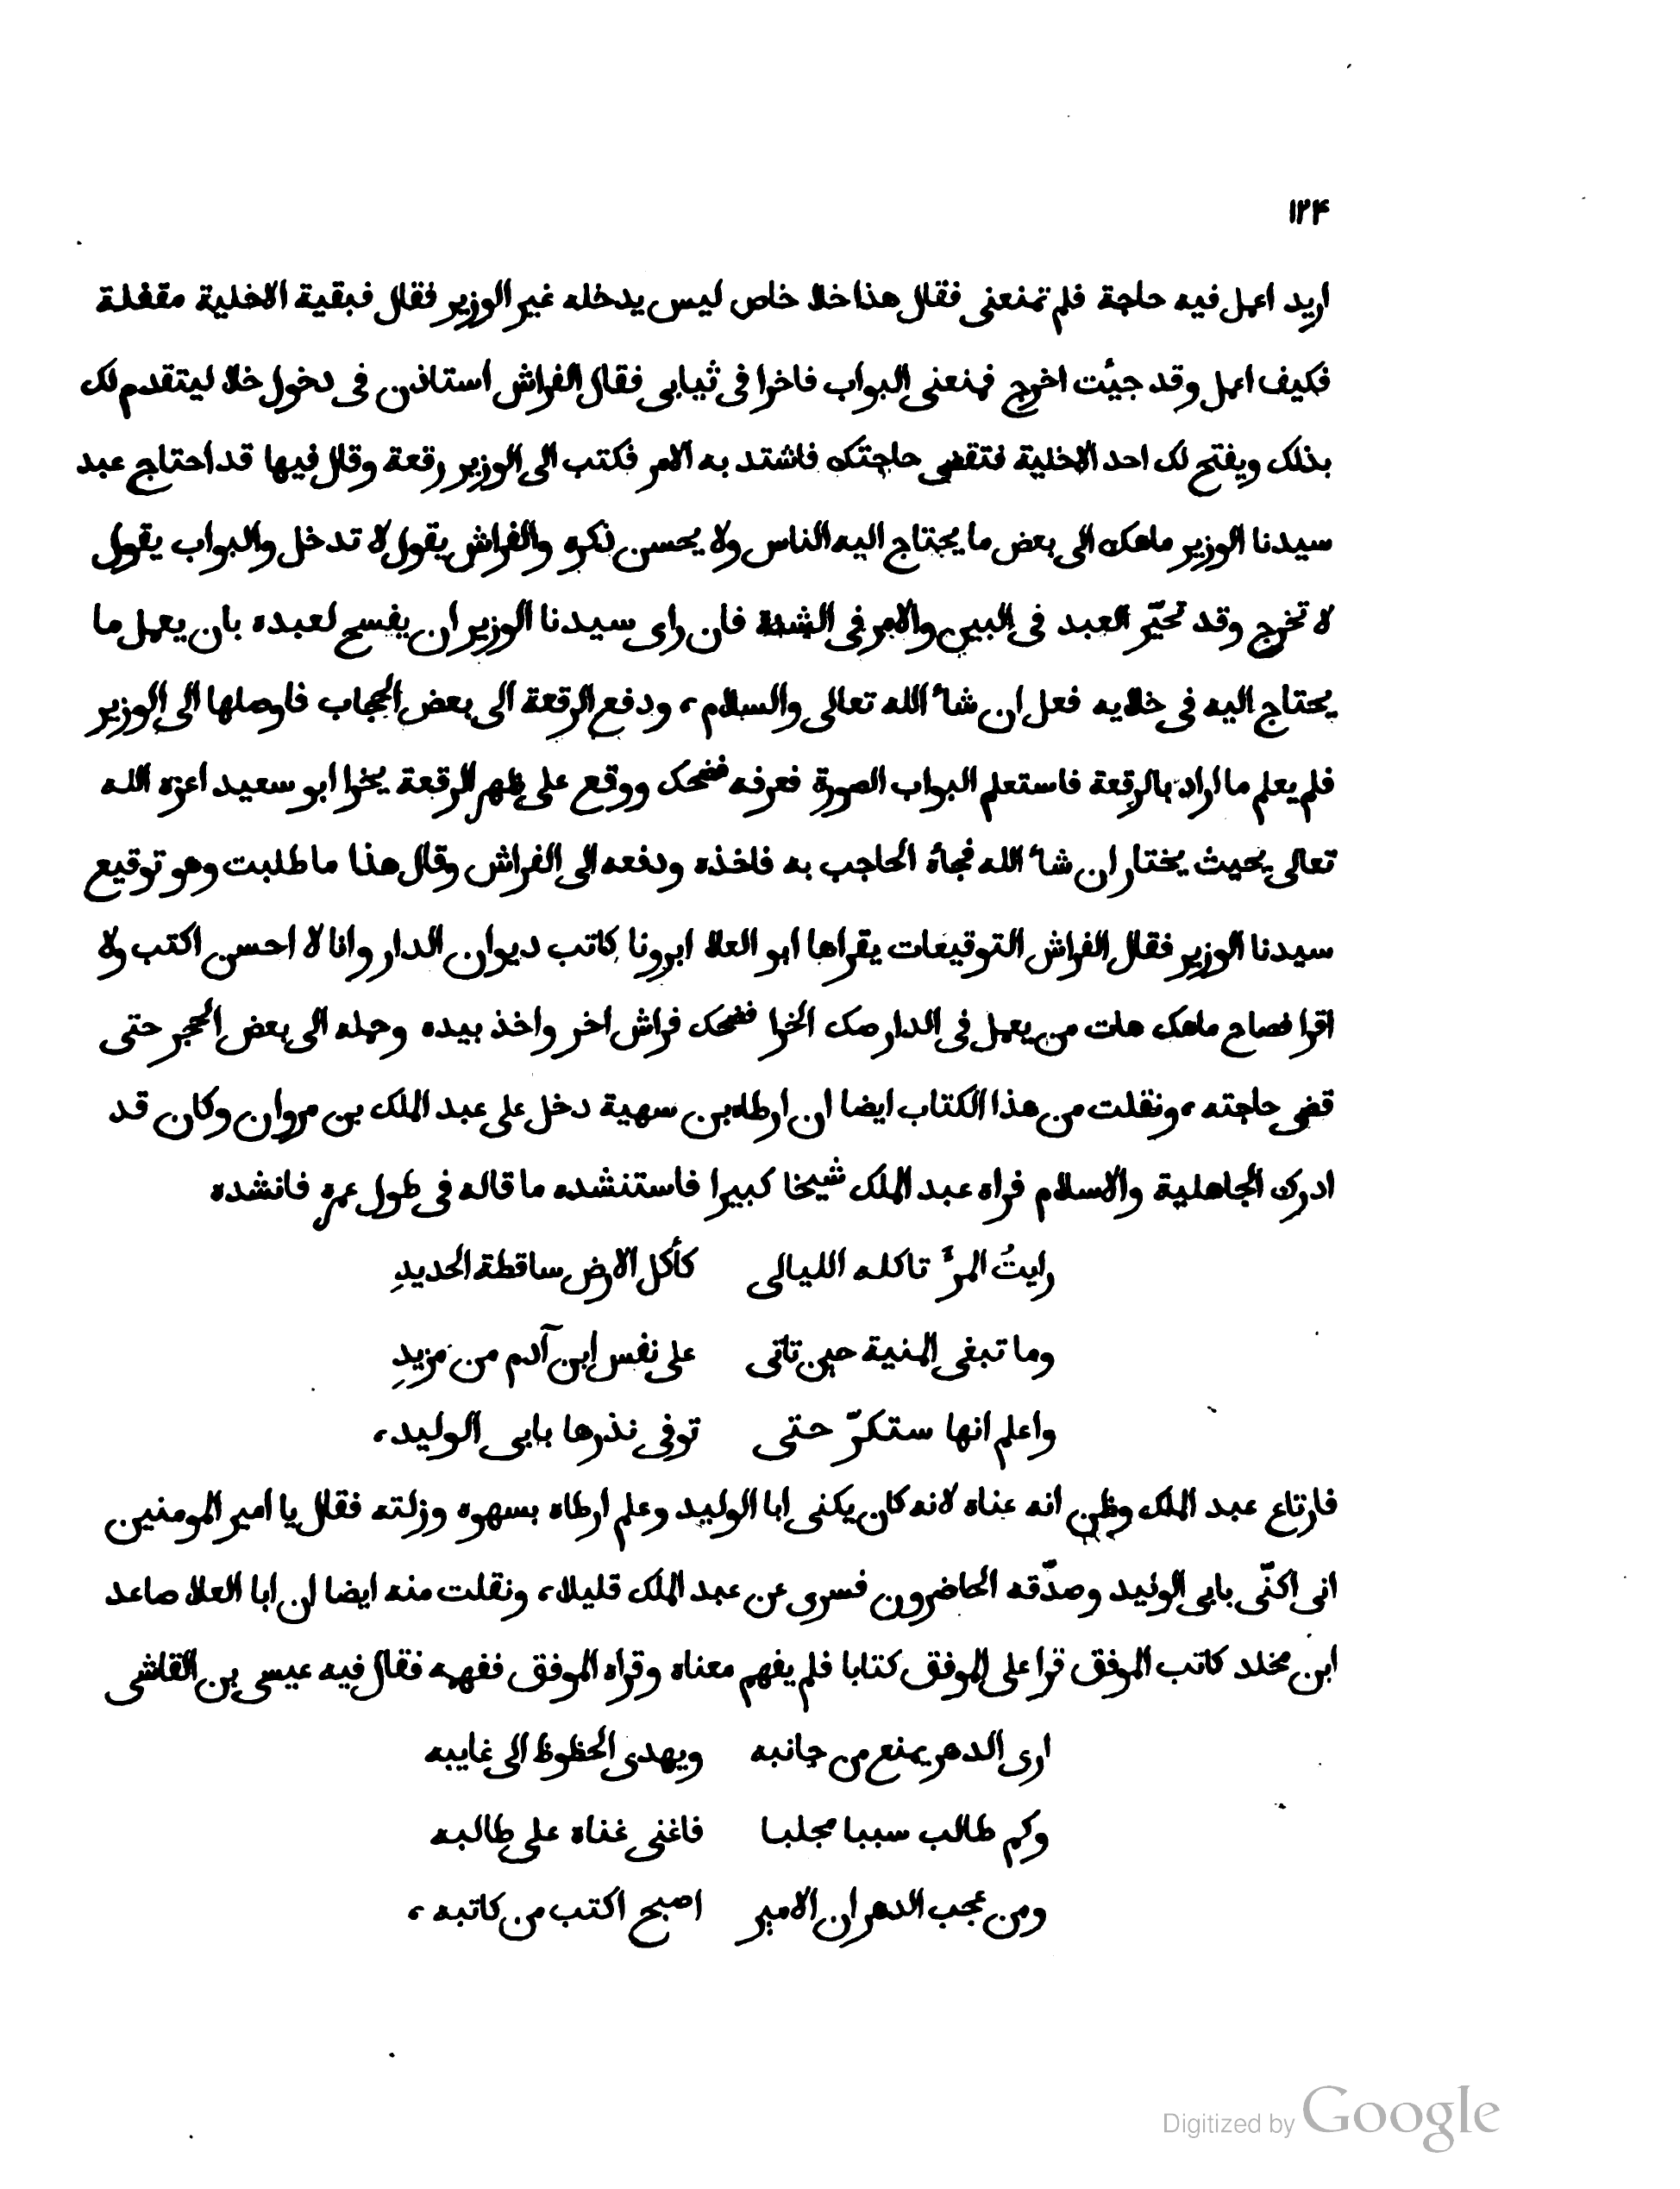 ١٢۴
اريد اعمل فيه حاجة فلم تمنعنى فقال هذا خلا خاص ليس يدخله غير الوزير فقال فبقية الاخلية مقفلة
فكيف اعمل وقد جيئت اخرج فمنعنى البواب فاخرا فى ثيابى فقال الفراش استاذن فى دخول خلا ليتقدم لك
بذلك ويفتح لك احد الاخلية فتقضى حاجتك فاشتد به الامر فكتب الى الوزير رقعة وقال فيها قد احتاج عبد
سيدنا الوزير ماهك الى بعض ما يحتاج اليه الناس ولا يحسن ذكره والفراش يقول لا تدخل والبواب يقول
لا تخرج وقد تحيّر العبد فى البين والامر فى الشدة فان راى سيدنا الوزير ان يفسح لعبده بان يعمل ما
يحتاج اليه فى خلايه فعل ان شاء الله تعالى والسلام، ودفع الرقعة الى بعض الحجاب فاوصلها الى الوزير
فلم يعلم ما اراد بالرقعة فاستعلم البواب الصورة فعرفه فضحك ووقع على ظهر الرقعة يخرا ابو سعيد اعزه الله
تعالى بحيث يختار ان شاء الله فجاة الحاجب به فاخذه ودفعه الى الفراش وقال هذا ما طلبت وهو توقيع
سيدنا الوزير فقال الفراش التوقيعات يقراها ابو العلا ابرونا كاتب ديوان الدار وانا لا احسن اكتب ولا
اقرا فصاح ماهك هات من يعمل فى الدار صك الخرا فضحك فراش اخر واخذ بيده وحمله الى بعض الحجر حتى
قضى حاجته، ونقلت من هذا الكتاب ايضا ان ارطاه بن سهية دخل على عبد الملك بن مروان وكان قد
ادرك الجاهلية والاسلام فراه عبد الملك شيخا كبيرا فاستنشده ما قاله فى طول عمره فانشده
رايتُ المرء تاكله الليالى كأكل الارض ساقطة الحديدِ
وما تبغى المنية حين تاتى على نفس ابن آدم من مزيدِ
واعلم انها ستكرّ حتى توفى نذرها بابى الوليد،
فارتاع عبد الملك وظن انه عناه لانه كان يكنى ابا الوليد وعلم ارطاه بسهوه وزلته فقال يا امير المومنين
انى اكنّى بابى الوليد وصدّقه الحاضرون فسرى عن عبد الملك قليلا، ونقلت منه ايضا ان ابا العلا صاعد
ابن مخلد كاتب الموفق قرا على الموفق كتابا فلم يفهم معناه وقراه الموفق ففهمه فقال فيه عيسى بن القاشى
ارى الدهر يمنع من جانبه ويهدى الحظوظ الى غايبه
وكم طالب سببا مجلبا فاغنى غناه على طالبه
ومن عجب الدهر ان الامير اصبح اكتب من كاتبه،
Digitized by Google